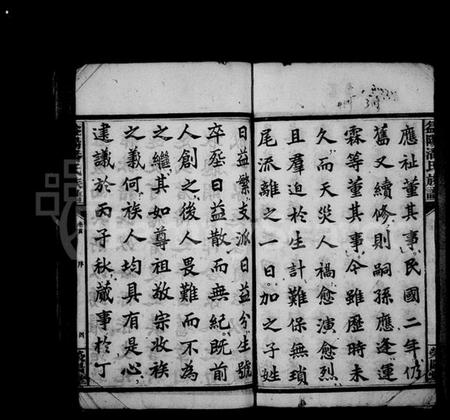 應祉董其事民國二年仍
舊又續修則嗣孫應逢運
霖等董其事今雖歷時未
久而天災人禍愈演愈烈
且羣迫於生計難保無瑣
尾流離之一日加之子姓
日益繁支派日益分生
卒塟日益散而無紀既前
人創之後人畏難而不為
之繼其如尊祖敬宗收族
之義何族人均具有是心
建議於丙子秋蕆事於丁